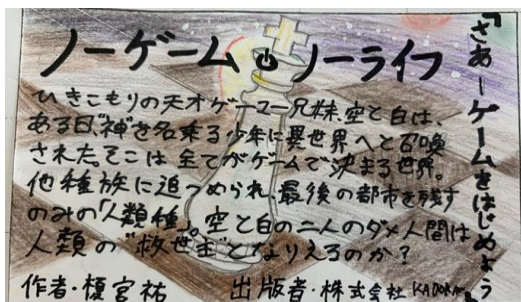 ノーゲーム・ノーライフ
「さあーゲームをはじめよう」
ひきこもりの天才ゲーマー兄妹、空と白は、
ある日、"神"を名乗る少年に異世界へと召喚
された。そこは全てがゲームで決まる世界。
他種族に追いつめられ、最後の都市を残す
のみの「人類種」。空と白の二人のダメ人間は
人類の"救世主"となりえるのか？
作者・榎宮祐 出版者・株式会社 KADOKAWA